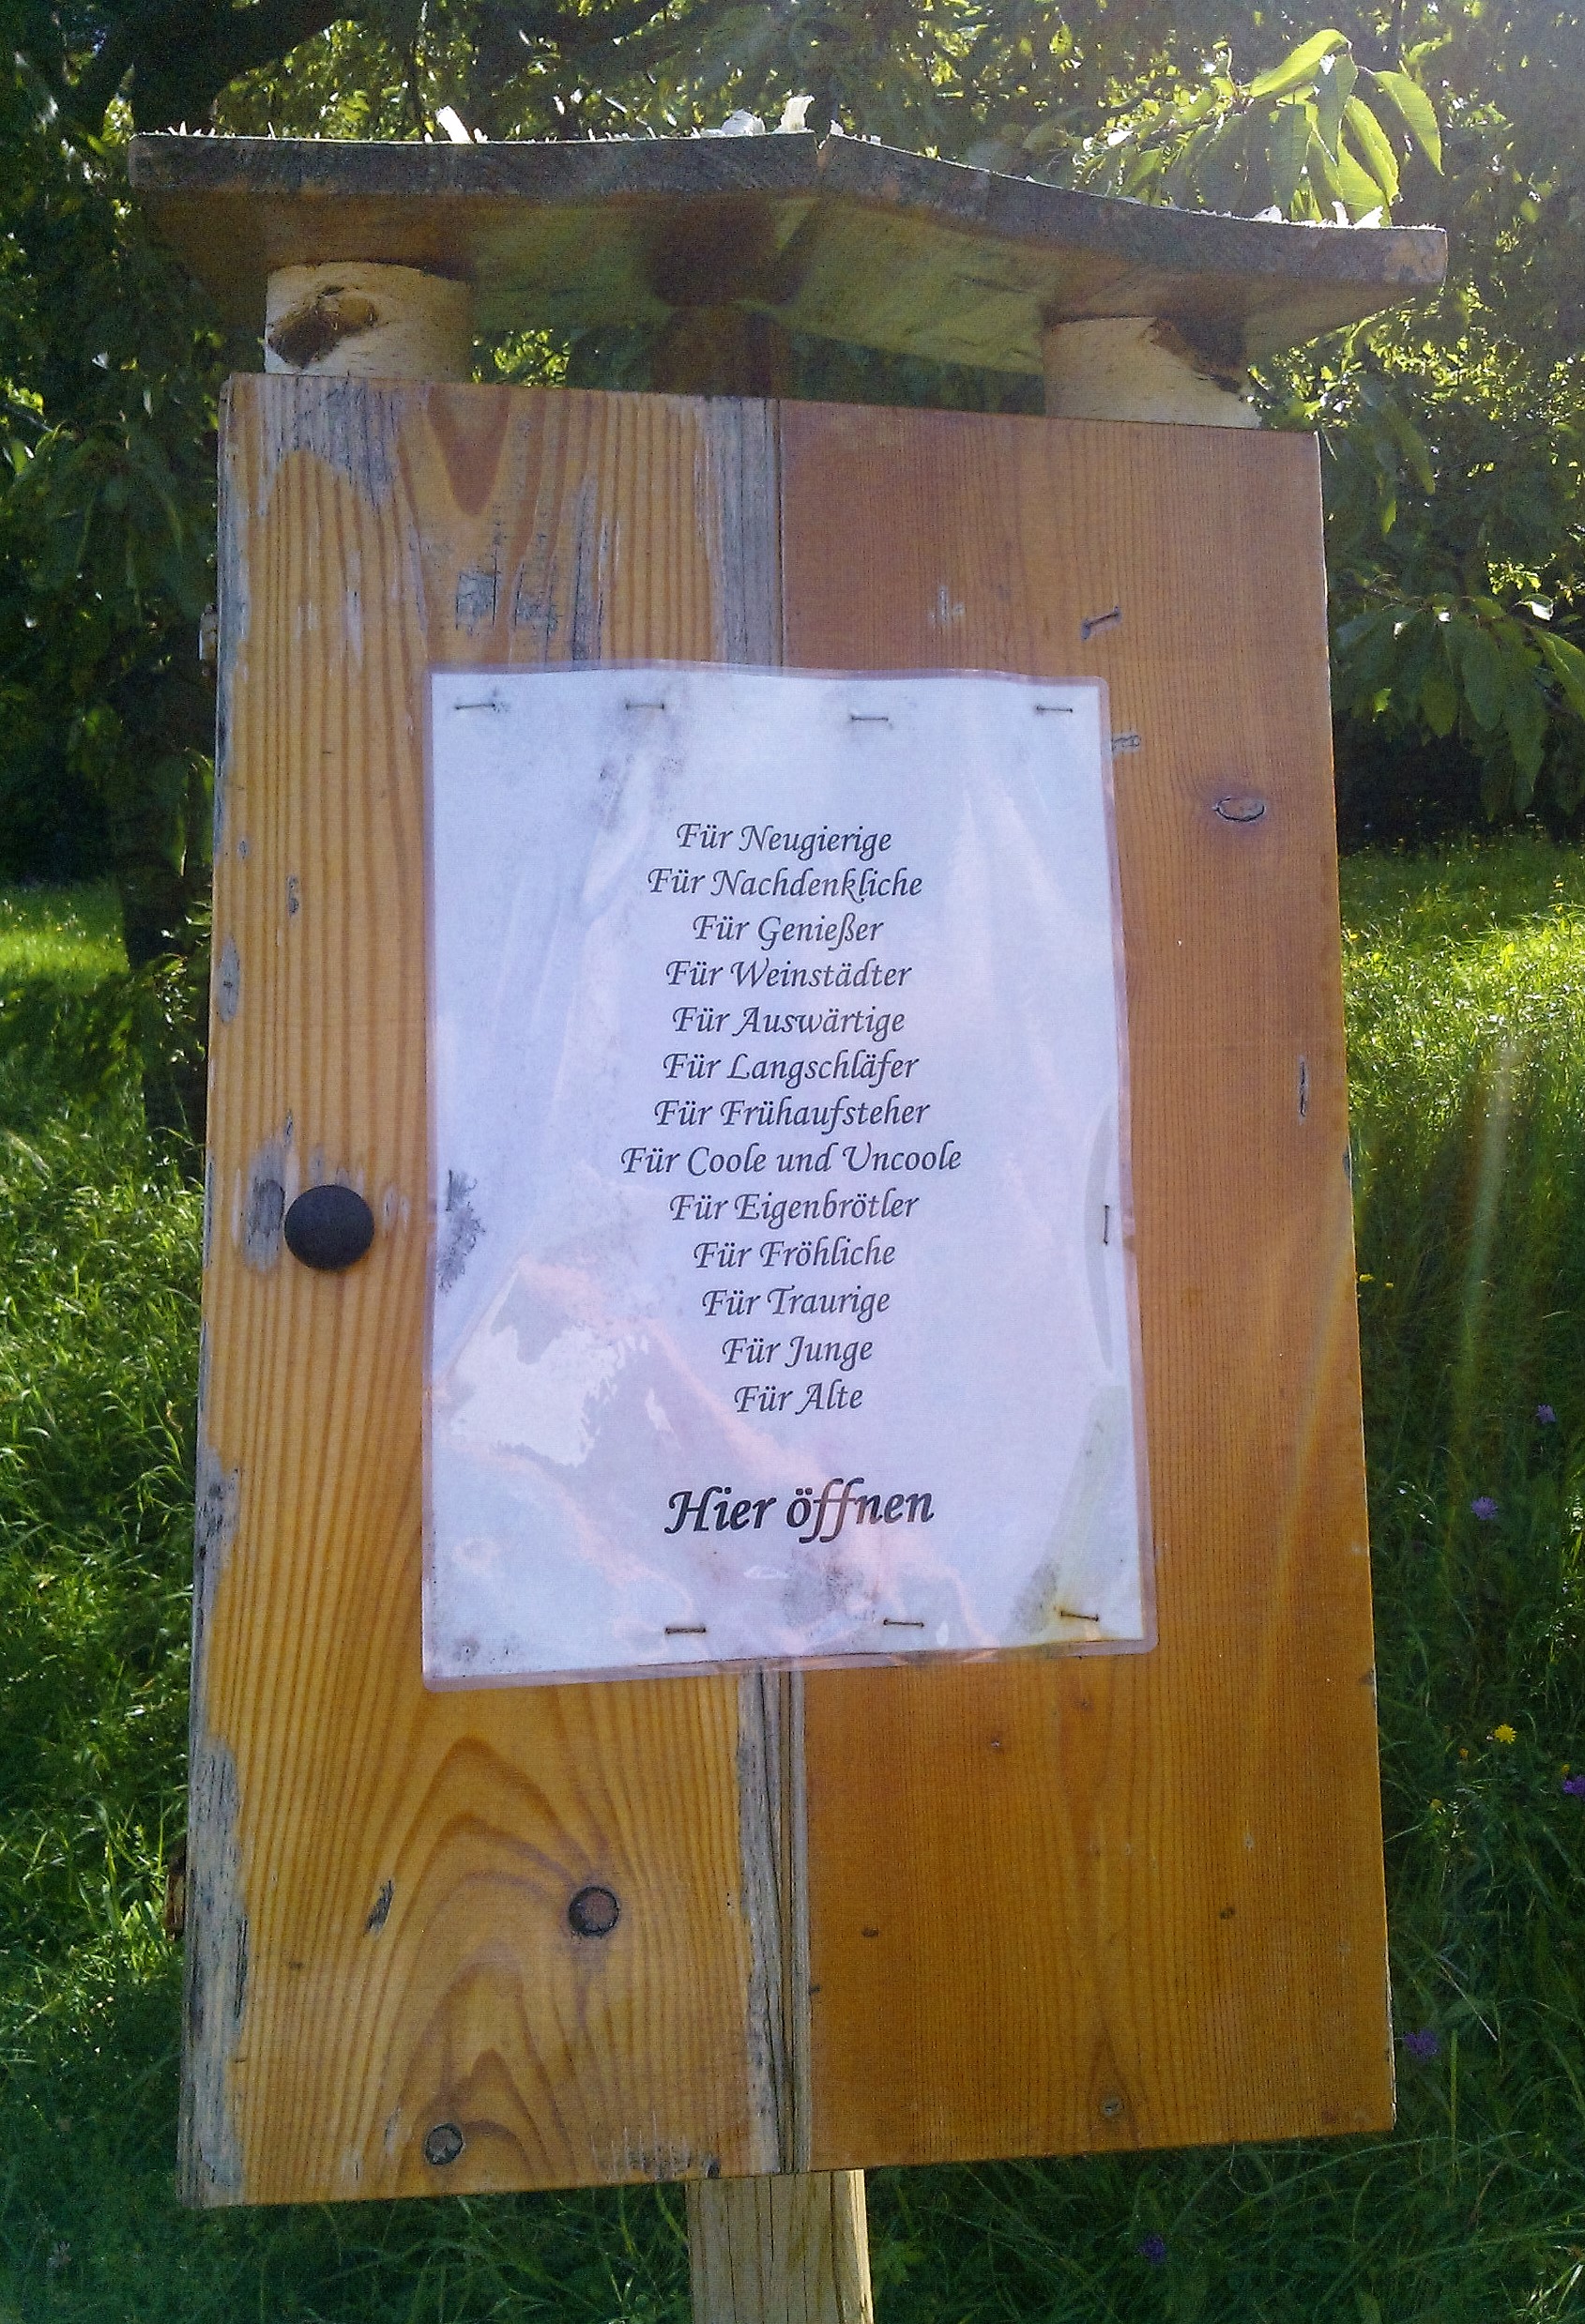 Für Neugierige
Für Nachdenkliche
Für Genießer
Für Weinstädter
Für Auswärtige
Für Langschläfer
Für Frühaufsteher
Für Coole und Uncoole
Für Eigenbrötler
Für Fröhliche
Für Traurige
Für Junge
Für Alte
Hier öffnen